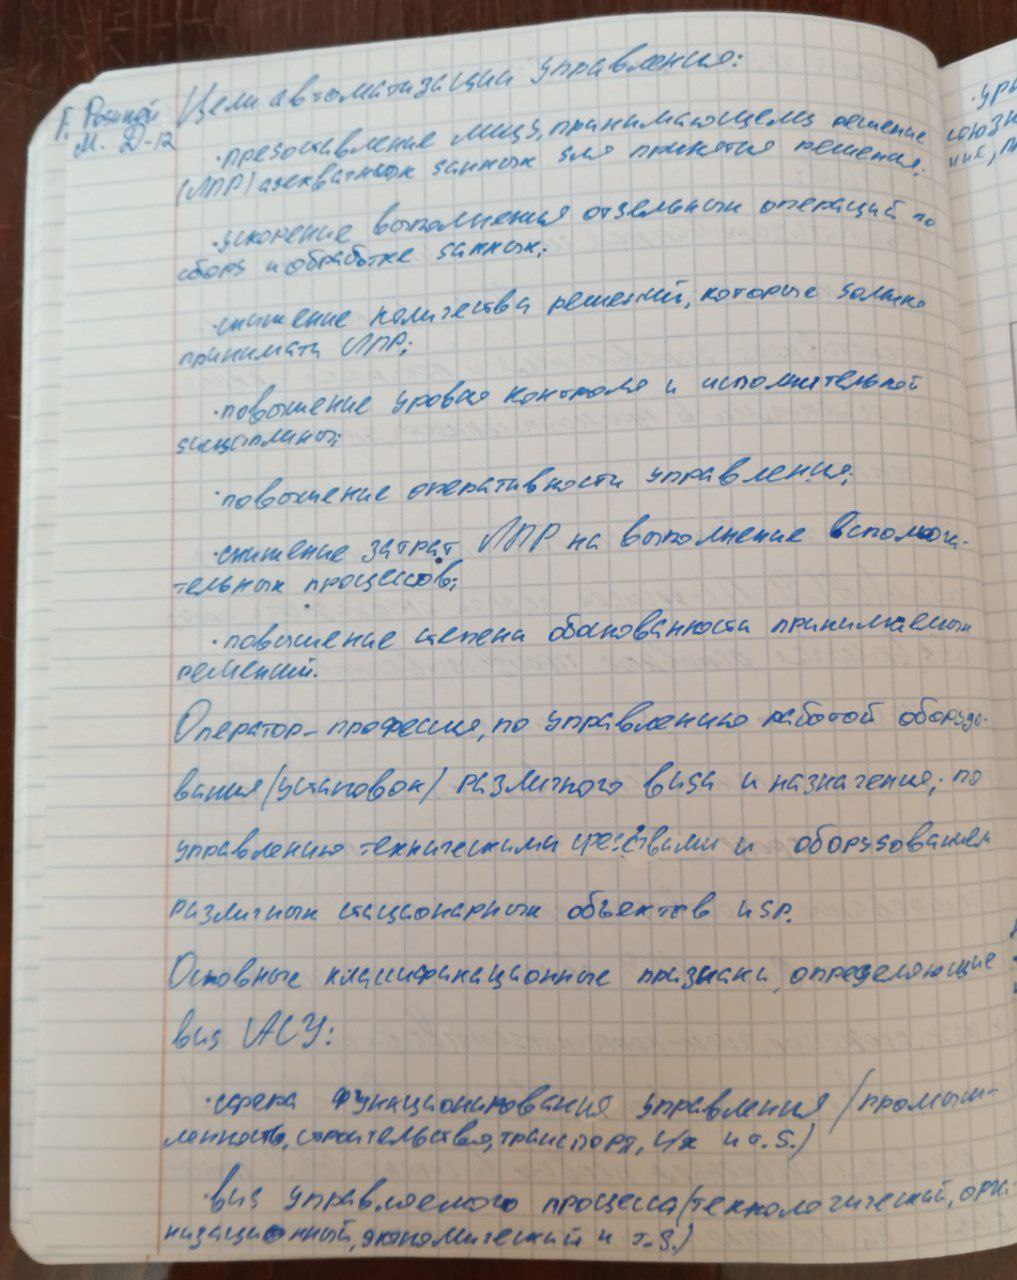 Цели автоматизации управления:
М. Д-12
·предоставление лицу, принимающему решение
(ЛПР) адекватных данных для принятия решения;
·ускорение выполнения отдельных операций по
сбору и обработке данных;
·снижение количества решений, которые должно
принимать ЛПР;
·повышение уровня контроля и исполнительной
дисциплины;
·повышение оперативности управления;
·снижение затрат ЛПР на выполнение вспомога-
тельных процессов;
·повышение степени обоснованности принимаемых
решений.
Оператор-профессия, по управлению работой оборудо-
вания/установок/ различного вида и назначения; по
управлению техническими средствами и оборудованием
различных стационарных объектов и др.
Основные классификационные признаки, определяющие
вид АСУ:
·сфера функционирования управления /промыш-
ленность, строительство, транспорт, с/х и т.д.)
·вид управляемого процесса/технологический, орга-
низационный, экономический и т.д.)